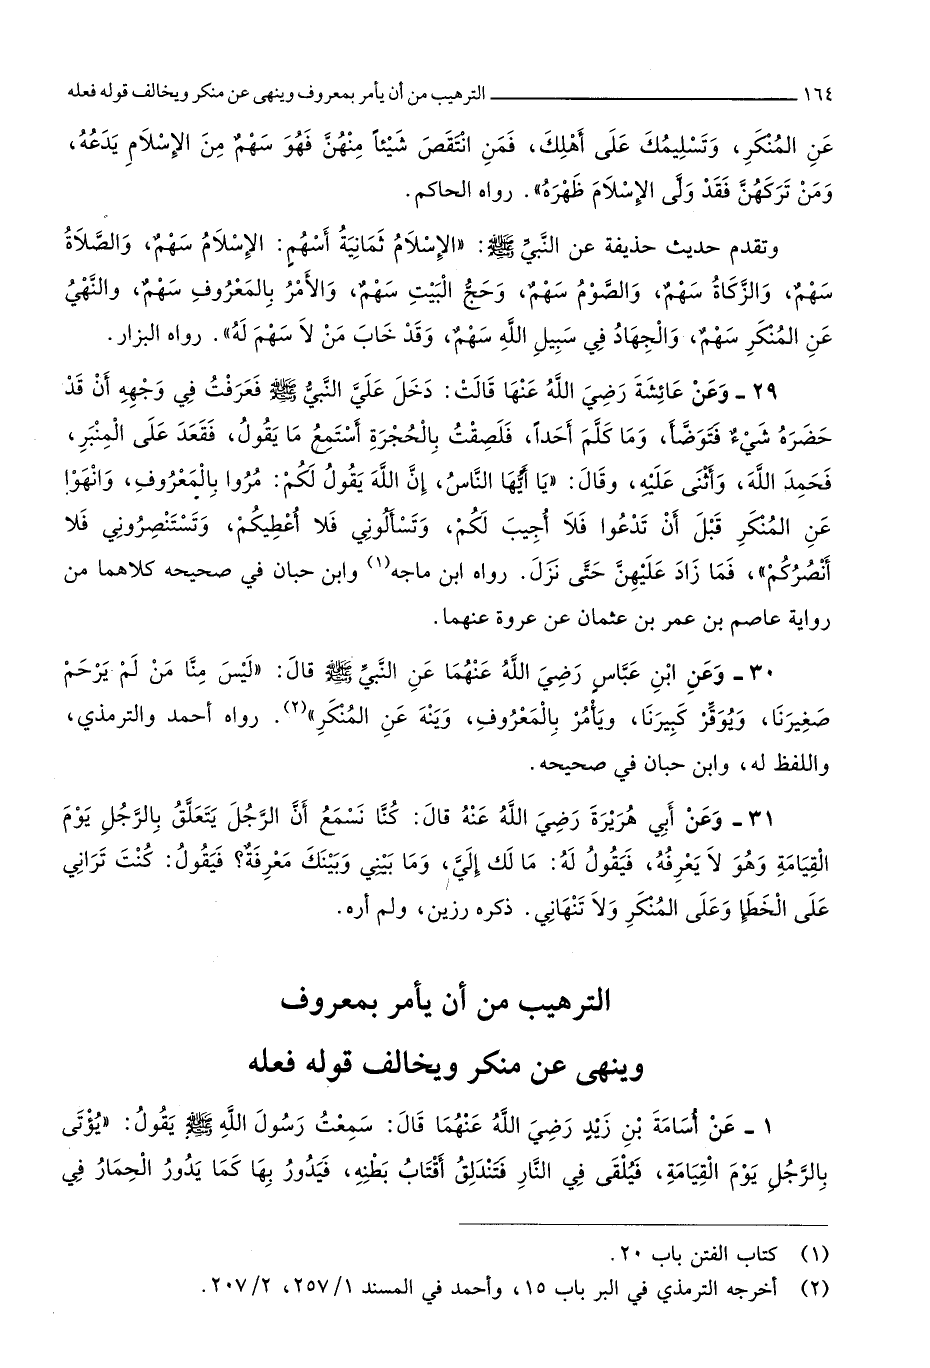 ١٦٤ ـــــــــ الترهيب من أن يأمر بمعروف وينهى عن منكر ويخالف قوله فعله
عَنِ المُنْكَرِ، وَتَسْلِيمُكَ عَلَى أَهْلِكَ، فَمَنِ انْتَقَصَ شَيْئاً مِنْهُنَّ فَهُوَ سَهْمٌ مِنَ الإسْلاَمِ يَدَعُهُ،
وَمَنْ تَرَكَهُنَّ فَقَدْ وَلَّى الإسْلاَمَ ظَهْرَهُ». رواه الحاكم.
وتقدم حديث حذيفة عن النَّبيِّ ﷺ: «الإسْلاَمُ ثَمَانِيَةُ أَسْهُمٍ: الإسْلاَمُ سَهْمٌ، وَالصَّلاَةُ
سَهْمٌ، وَالزَّكَاةُ سَهْمٌ، وَالصَّوْمُ سَهْمٌ، وَحَجُّ الْبَيْتِ سَهْمٌ، وَالأمْرُ بِالمَعْرُوفِ سَهْمٌ، والنَّهْيُ
عَنِ المُنْكَرِ سَهْمٌ، وَالْجِهَادُ فِي سَبِيلِ اللَّهِ سَهْمٌ، وَقَدْ خَابَ مَنْ لاَ سَهْمَ لَهُ». رواه البزار.
٢٩ ـ وَعَنْ عَائِشَةَ رَضِيَ اللَّهُ عَنْهَا قَالَتْ: دَخَلَ عَلَيَّ النَّبيُّ ﷺ فَعَرَفْتُ فِي وَجْهِهِ أَنْ قَدْ
حَضَرَهُ شَيْءٌ فَتَوَضَّأَ، وَمَا كَلَّمَ أَحَداً، فَلَصِقْتُ بِالْحُجْرَةِ أَسْتَمِعُ مَا يَقُولُ، فَقَعَدَ عَلَى الْمِنْبَرِ،
فَحَمِدَ اللَّهَ، وَأَثْنَى عَلَيْهِ، وقَالَ: «يَا أَيُّهَا النَّاسُ، إِنَّ اللَّهَ يَقُولُ لَكُمْ: مُرُوا بِالْمَعْرُوفِ، وَانْهَوْا
عَنِ المُنْكَرِ قَبْلَ أَنْ تَدْعُوا فَلاَ أُجِيبَ لَكُمْ، وَتَسْأَلُونِي فَلا أُعْطِيكُمْ، وَتَسْتَنْصِرُونِي فَلا
أَنْصُرُكُمْ»، فَمَا زَادَ عَلَيْهِنَّ حَتَّى نَزَلَ. رواه ابن ماجه(١) وابن حبان في صحيحه كلاهما من
رواية عاصم بن عمر بن عثمان عن عروة عنهما.
٣٠ ـ وَعَنِ ابْنِ عَبَّاسٍ رَضِيَ اللَّهُ عَنْهُمَا عَنِ النَّبيِّ ﷺ قالَ: «لَيْسَ مِنَّا مَنْ لَمْ يَرْحَمْ
صَغِيرَنَا، وَيُوَقِّرْ كَبِيرَنَا، ويَأْمُرْ بِالْمَعْرُوفِ، وَيَنْهَ عَنِ المُنْكَرِ»(٢). رواه أحمد والترمذي،
واللفظ له، وابن حبان في صحيحه.
٣١ ـ وَعَنْ أَبِي هُرَيْرَةَ رَضِيَ اللَّهُ عَنْهُ قالَ: كُنَّا نَسْمَعُ أَنَّ الرَّجُلَ يَتَعَلَّقُ بِالرَّجُلِ يَوْمَ
الْقِيَامَةِ وَهُوَ لاَ يَعْرِفُهُ، فَيَقُولُ لَهُ: مَا لَك إِلَيَّ، وَمَا بَيْنِي وَبَيْنَكَ مَعْرِفَةٌ؟ فَيَقُولُ: كُنْتَ تَرَانِي
عَلَى الْخَطَإِ وَعَلَى المُنْكَرِ وَلاَ تَنْهَانِي. ذكره رزين، ولم أره.
الترهيب من أن يأمر بمعروف
وينهى عن منكر ويخالف قوله فعله
١ ـ عَنْ أُسَامَةَ بْنِ زَيْدٍ رَضِيَ اللَّهُ عَنْهُمَا قَالَ: سَمِعْتُ رَسُولَ اللَّهِ ﷺ يَقُولُ: «يُؤْتَى
بِالرَّجُلِ يَوْمَ الْقِيَامَةِ، فَيُلْقَى فِي النَّارِ فَتَنْدَلِقُ أَقْتَابُ بَطْنِهِ، فَيَدُورُ بِهَا كَمَا يَدُورُ الْحِمَارُ فِي
(١) كتاب الفتن باب ٢٠.
(٢) أخرجه الترمذي في البر باب ١٥، وأحمد في المسند ١/ ٢٥٧، ٢/ ٢٠٧.